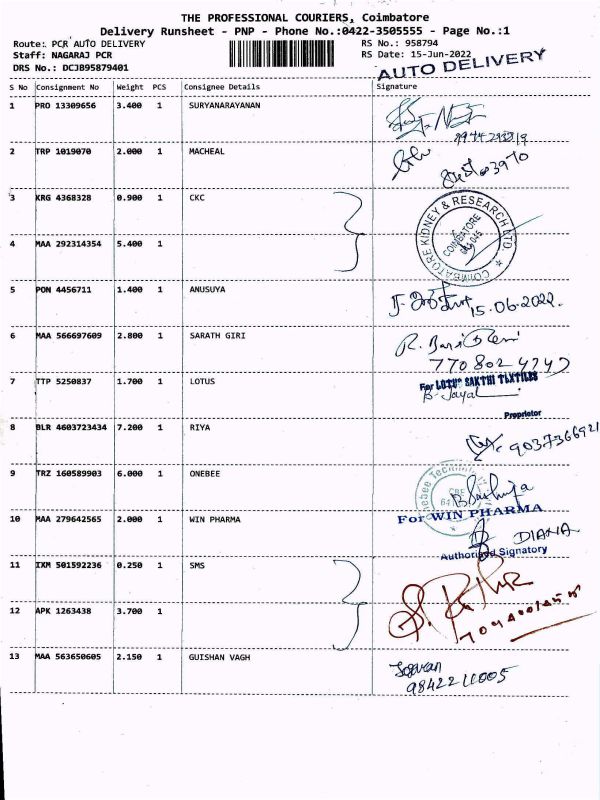 THE PROFESSIONAL COURIERS, Coimbatore
Delivery Runsheet - PNP - Phone No.:0422-3505555 - Page No.:1
Route: PCR AUTO DELIVERY RS No.: 958794
Staff: NAGARAJ PCR RS Date: 15-Jun-2022
DRS No.: DCJB95879401 AUTO DELIVERY
S No Consignment No Weight PCS Consignee Details Signature
1 PRO 13309656 3.400 1 SURYANARAYANAN
2 TRP 1019070 2.000 1 MACHEAL
3 KRG 4368328 0.900 1 CKC
COIMBATORE KIDNEY & RESEARCH LTD
COIMBATORE
4 MAA 292314354 5.400 1
5 PON 4456711 1.400 1 ANUSUYA
15.06.2022.
6 MAA 566697609 2.800 1 SARATH GIRI
7 TTP 5250837 1.700 1 LOTUS
For LOTUS SAKTHI TEXTILES
B. Jayal
Proprietor
8 BLR 4603723434 7.200 1 RIYA
9 TRZ 160589903 6.000 1 ONEBEE
10 MAA 279642565 2.000 1 WIN PHARMA
For WIN PHARMA
DIANA
Authorised Signatory
11 IXM 501592236 0.250 1 SMS
12 APK 1263438 3.700 1
13 MAA 563650605 2.150 1 GUISHAN VAGH
9842211005